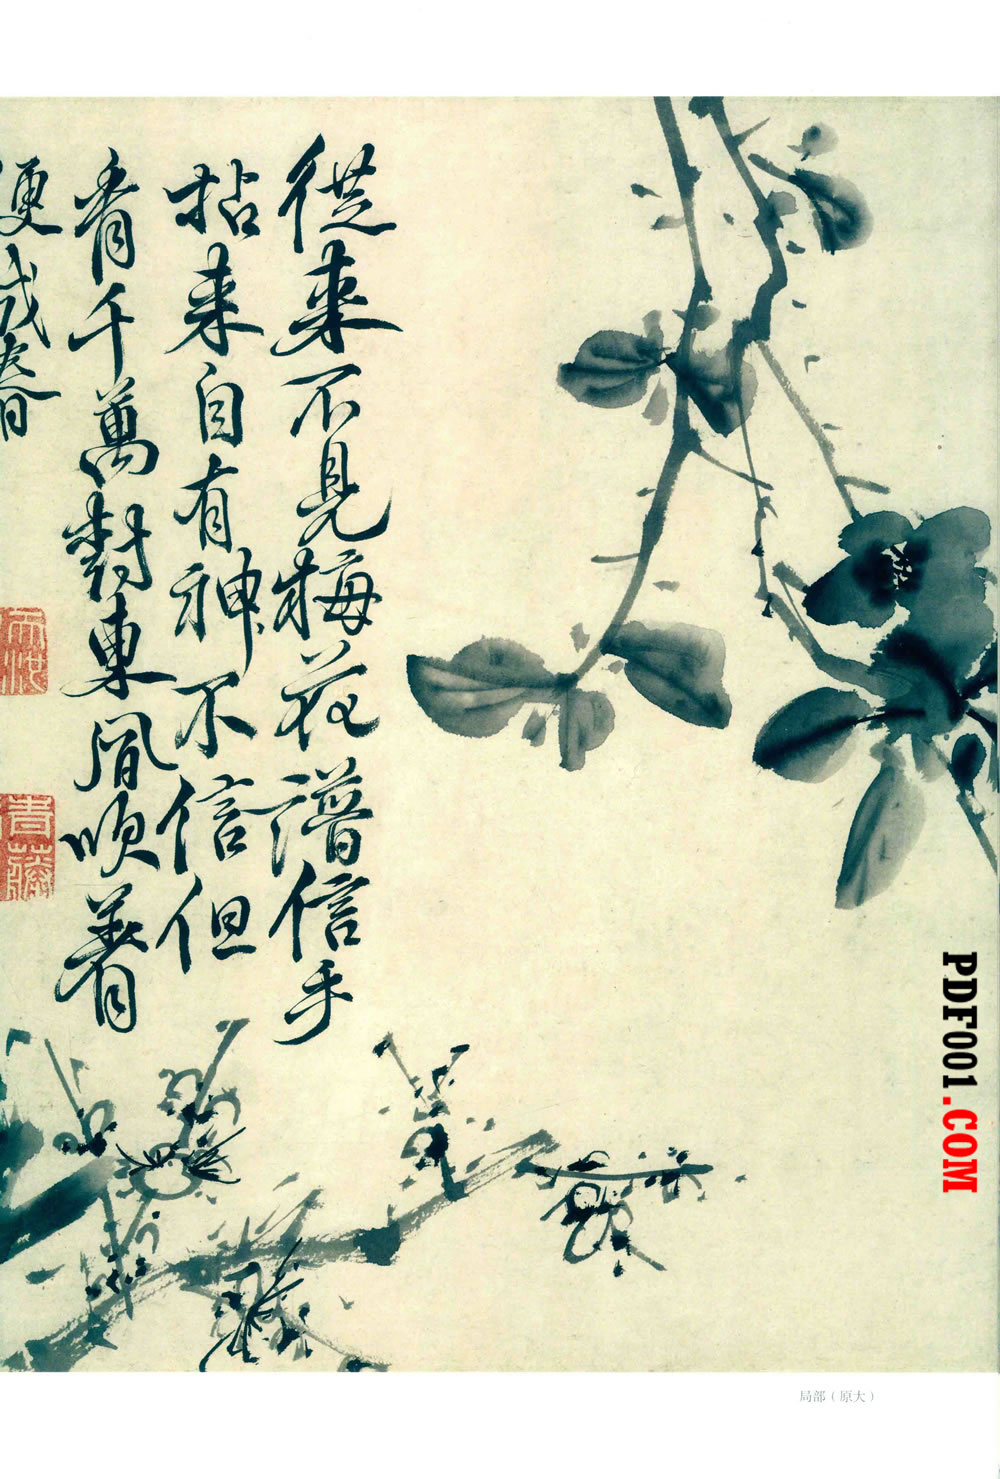 從来不見梅花譜信手
拈来自有神不信但
看千萬樹東風吹着
便成春
青藤
PDF001.COM
局部（原大）